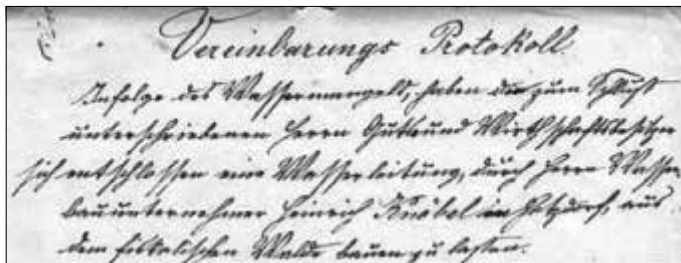 Vereinbarungs Protokoll
Infolge des Wassermangels, haben die zum Schluß
unterschriebenen Herrn Guts und Wirthschaftsbesitzer
sich entschlossen eine Wasserleitung, durch Herrn Wasser
bauunternehmer Heinrich Knöbel in, aus
dem fiskalischen Walde bauen zu lassen.